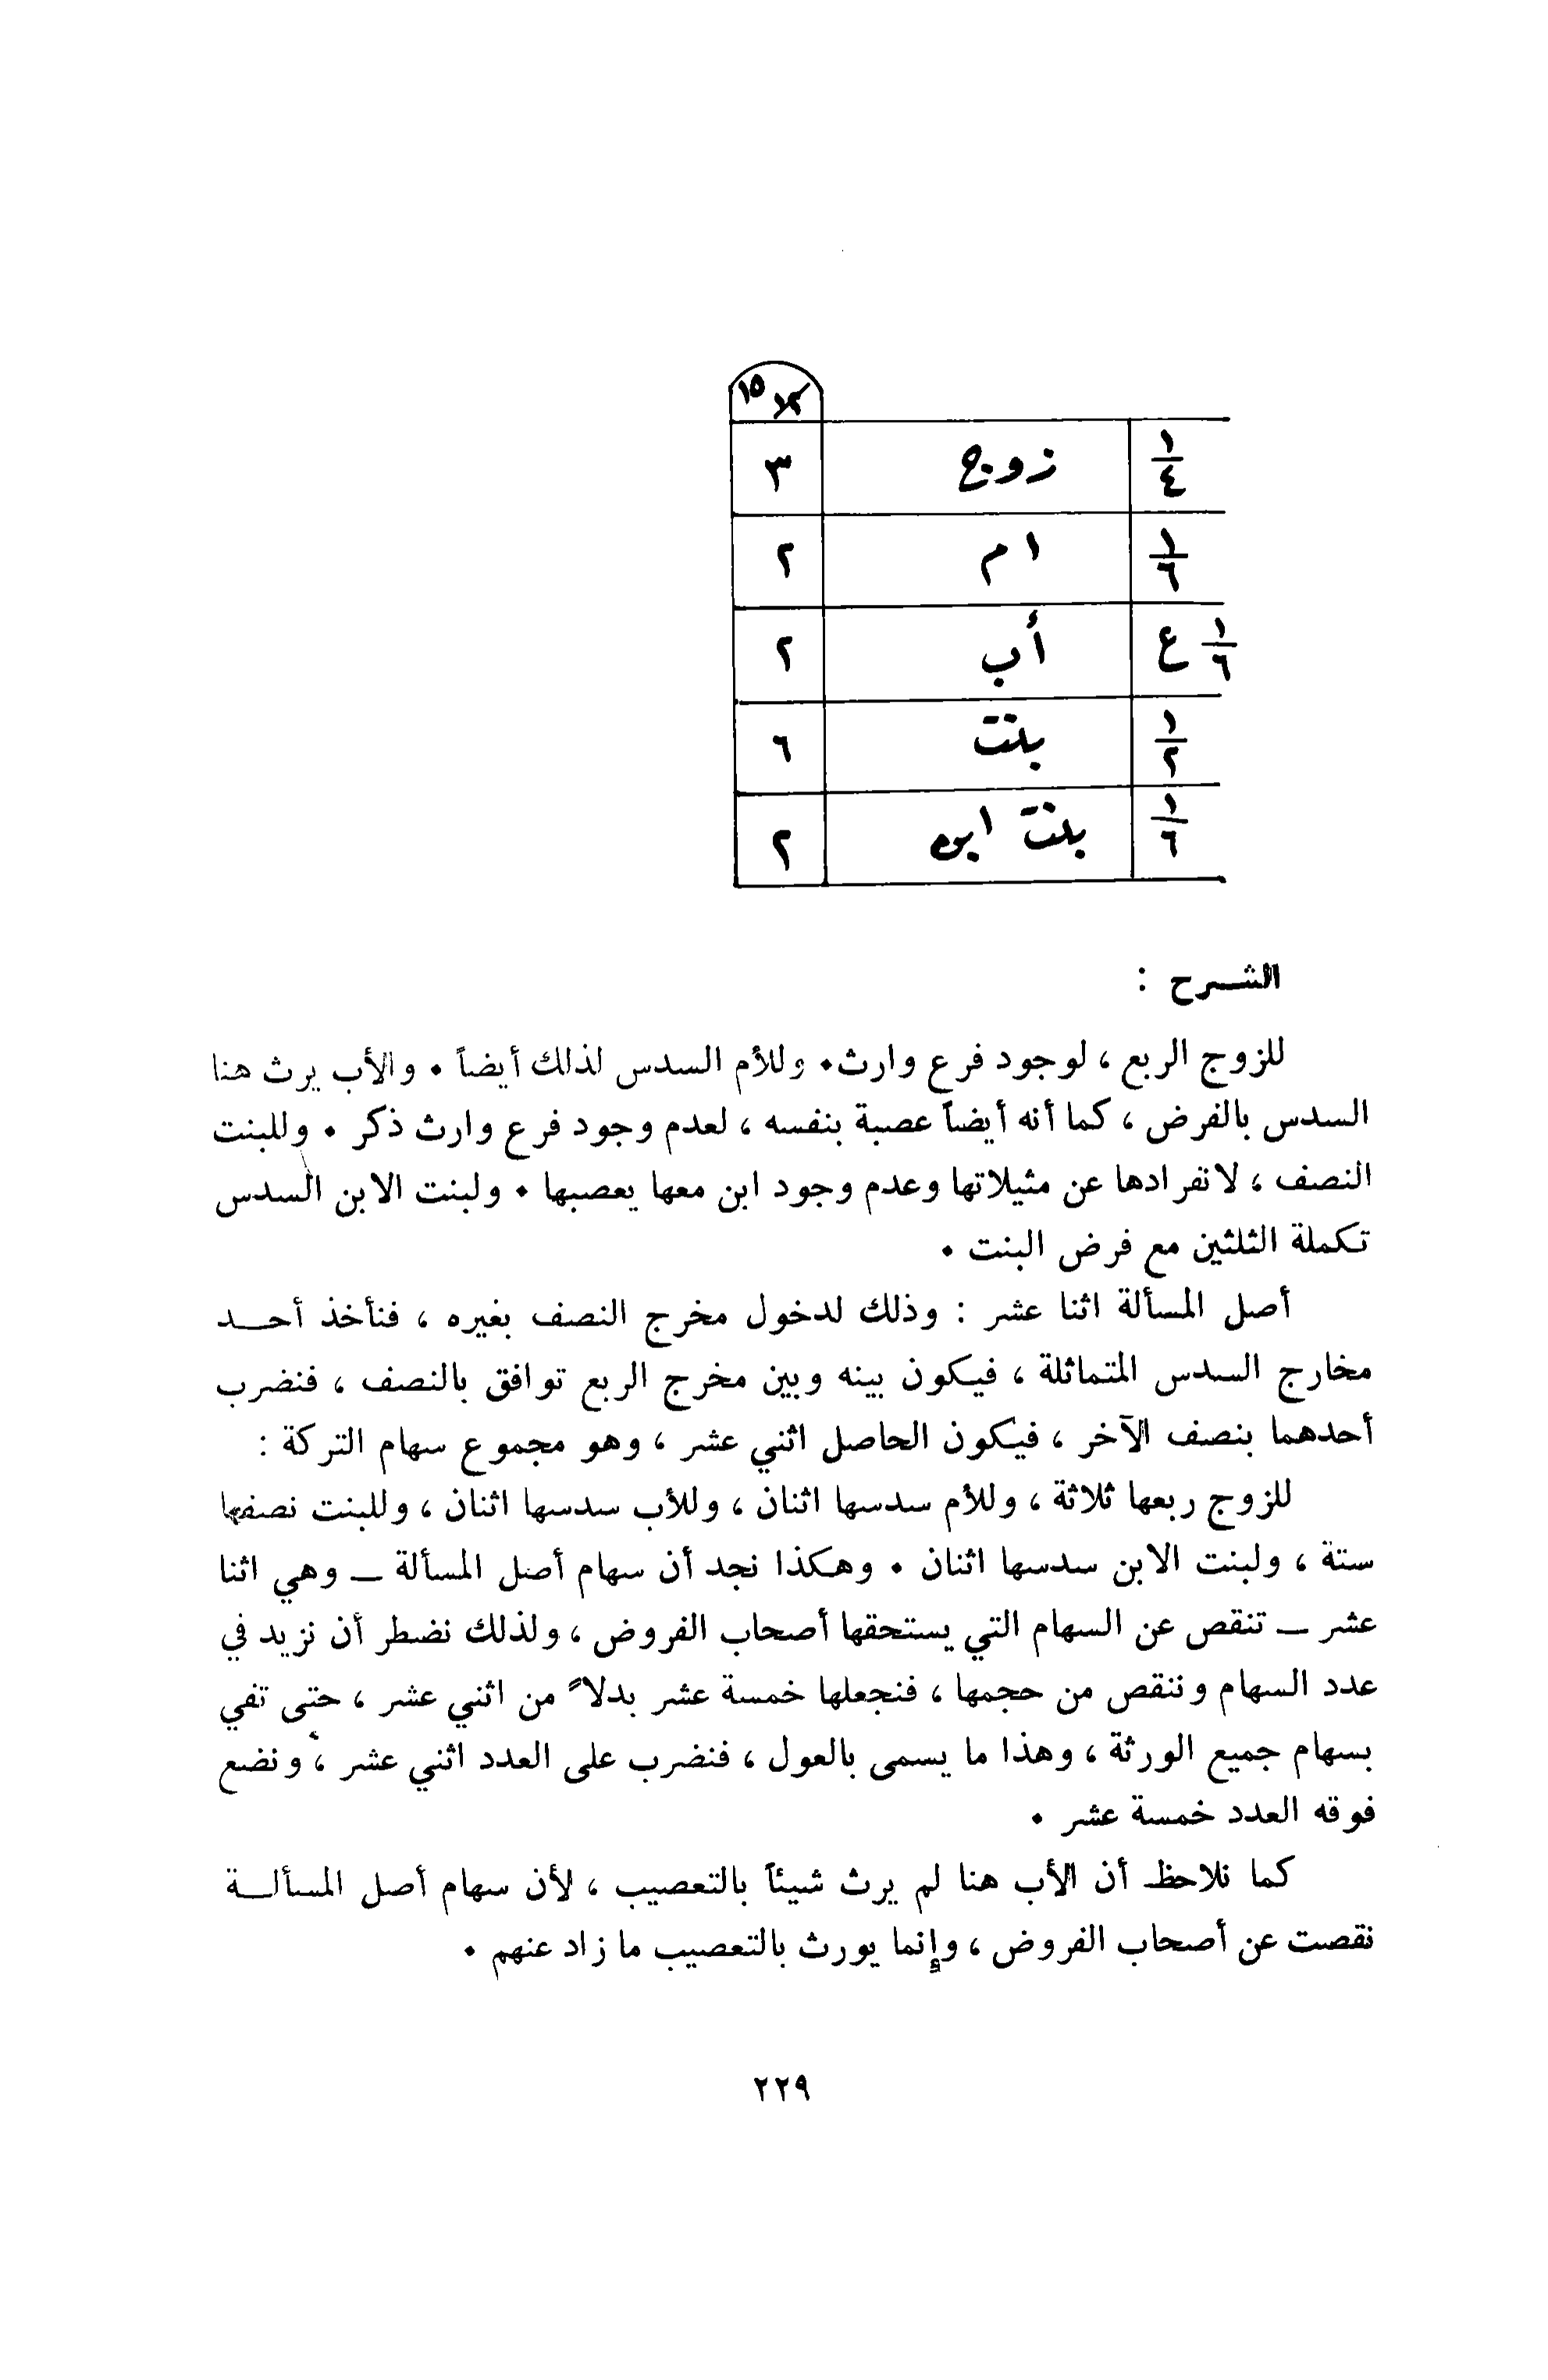 ١٥ ١٢
١/٤ زوج ٣
١/٦ ام ٢
١/٦ ع أب ٢
١/٢ بنت ٦
١/٦ بنت ابن ٢
الشـرح :
للزوج الربع ، لوجود فرع وارث. وللأم السدس لذلك أيضاً . والأب يرث هنا
السدس بالفرض ، كما أنه أيضاً عصبة بنفسه ، لعدم وجود فرع وارث ذكر . وللبنت
النصف ، لانفرادها عن مثيلاتها وعدم وجود ابن معها يعصبها . ولبنت الابن السدس
تكملة الثلثين مع فرض البنت .
أصل المسألة اثنا عشر : وذلك لدخول مخرج النصف بغيره ، فنأخذ أحـد
مخارج السدس المتماثلة ، فيكون بينه وبين مخرج الربع توافق بالنصف ، فنضرب
أحدهما بنصف الآخر ، فيكون الحاصل اثني عشر ، وهو مجموع سهام التركة :
للزوج ربعها ثلاثة ، وللأم سدسها اثنان ، وللأب سدسها اثنان ، وللبنت نصفها
ستة ، ولبنت الابن سدسها اثنان . وهكذا نجد أن سهام أصل المسألة ــ وهي اثنا
عشر ــ تنقص عن السهام التي يستحقها أصحاب الفروض ، ولذلك نضطر أن نزيد في
عدد السهام وننقص من حجمها ، فنجعلها خمسة عشر بدلاً من اثني عشر ، حتى تفي
بسهام جميع الورثة ، وهذا ما يسمى بالعول ، فنضرب على العدد اثني عشر ، ونضع
فوقه العدد خمسة عشر .
كما نلاحظ أن الأب هنا لم يرث شيئاً بالتعصيب ، لأن سهام أصل المسألـة
نقصت عن أصحاب الفروض ، وإنما يورث بالتعصيب ما زاد عنهم .
٢٢٩